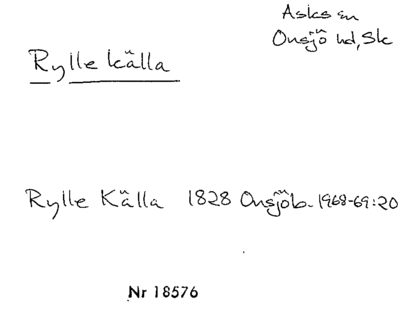 Asks sn
Onsjö hd, Sk
Rylle källa
Rylle Källa 1828 Onsjöb. 1968-69:20
Nr 18576